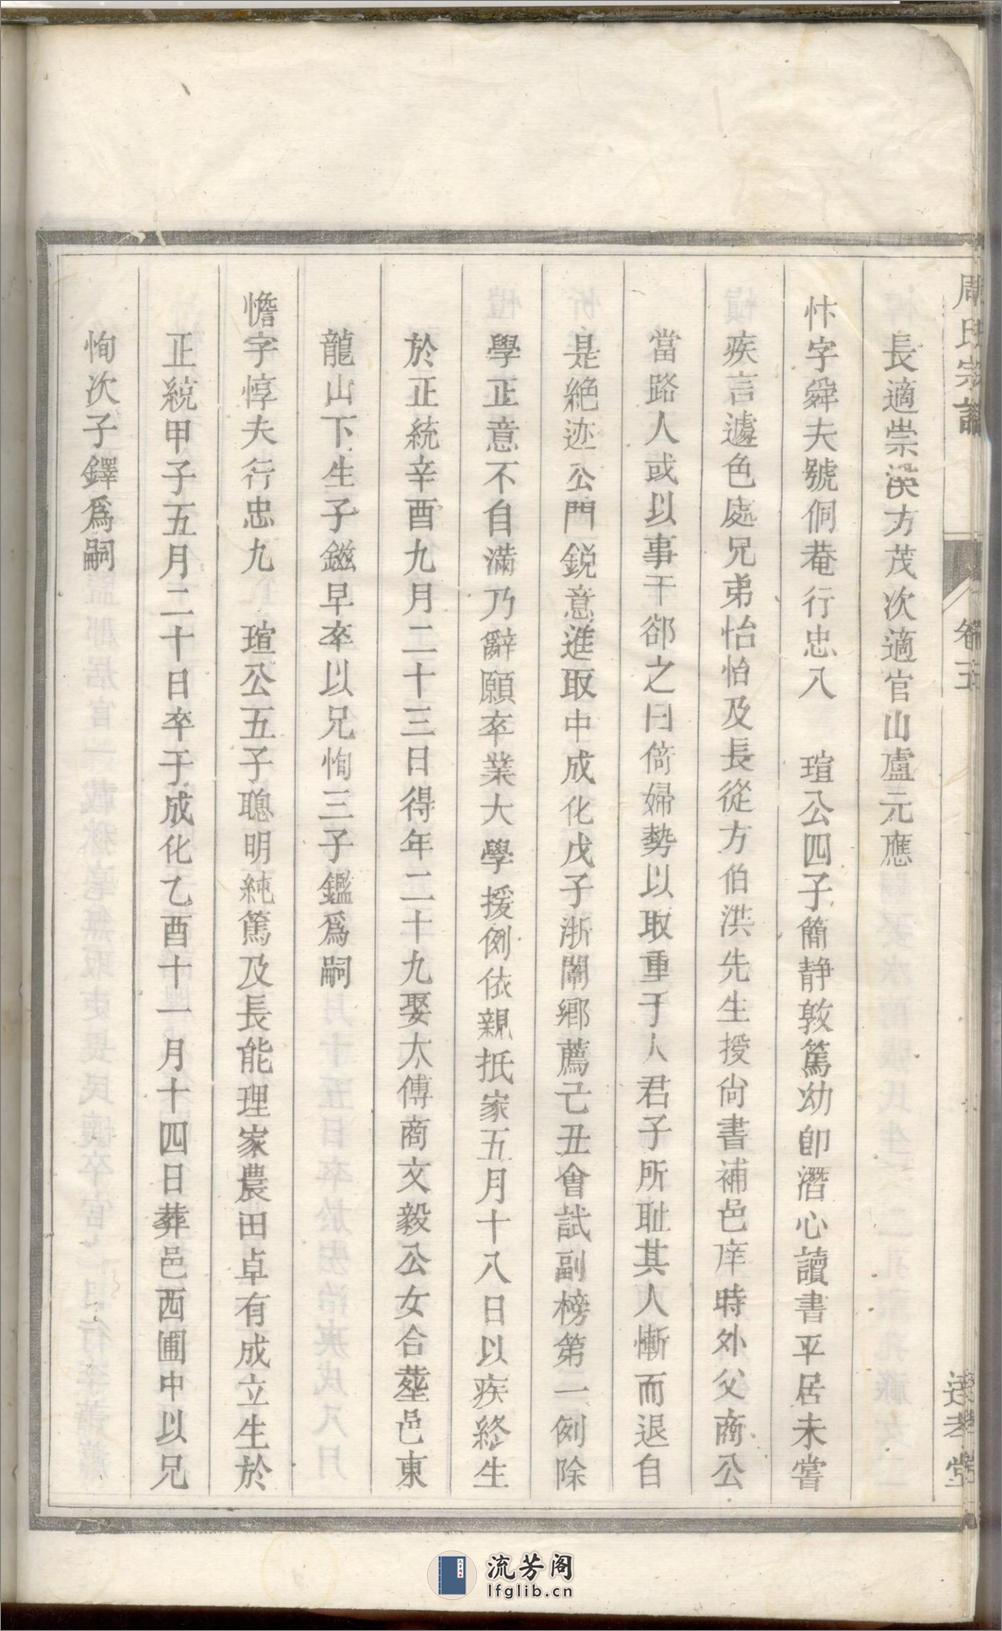 周氏宗譜
卷五
達孝堂
長適崇渙方茂次適官山盧元應
忭字舜夫號侗菴行忠八 瑄公四子簡靜敦篤幼卽潛心讀書平居未嘗
疾言遽色處兄弟怡怡及長從方伯洪先生授尙書補邑庠時外父商公
當路人或以事干郤之曰倚婦勢以取重于人君子所耻其人慚而退自
是絕迹公門銳意進取中成化戊子浙闈鄉薦己丑會試副榜第二例除
學正意不自滿乃辭願卒業大學援例依親抵家五月十八日以疾終生
於正統辛酉九月二十三日得年二十九娶太傅商文毅公女合塟邑東
龍山下生子鎡早卒以兄恂三子鑑爲嗣
憺字惇夫行忠九 瑄公五子聰明純篤及長能理家農田卓有成立生於
正統甲子五月二十日卒于成化乙酉十一月十四日葬邑西圃中以兄
恂次子鐸爲嗣
流芳阁
lfglib.cn